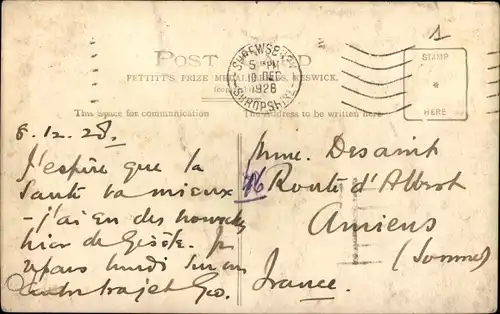 POST CARD
PETTITT'S PRIZE MEDAL SERIES, KESWICK.
SHREWSBURY
5 PM
10 DEC
1928
SHROPSHIRE
STAMP
HERE
This Space for communication
The Address to be written here
8.12.28.
J'espère que la
Santé va mieux
- j'ai eu des nouvelles
hier de Gisèle. Je
repars lundi sur un
autre trajet Geo.
Mme. Desaint
76 Route d'Albert
Amiens
(Somme)
France.